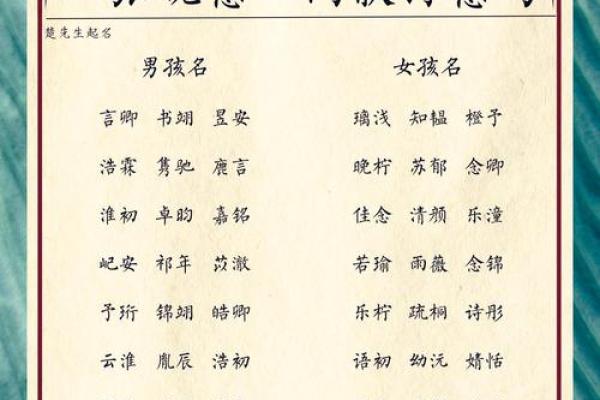 楚先生起名
男孩名 女孩名
言卿 书翊 昱安 璃浅 知韫 橙予
浩霖 隽驰 鹿言 晚柠 苏郁 念卿
淮初 卓昀 嘉铭 佳念 清颜 乐潼
屺安 祁年 苡澈 若瑜 雨薇 念锦
予珩 锦翊 皓卿 乐柠 疏桐 诗彤
云淮 胤辰 浩初 语初 幼沅 婧恬